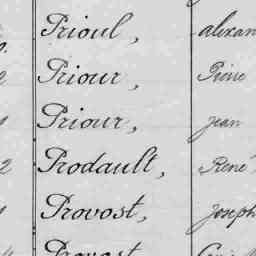 Prioul, alexan
2 Priour, Pierre
Priour, jean
2 Prodault, René
Provost, joseph
Provost